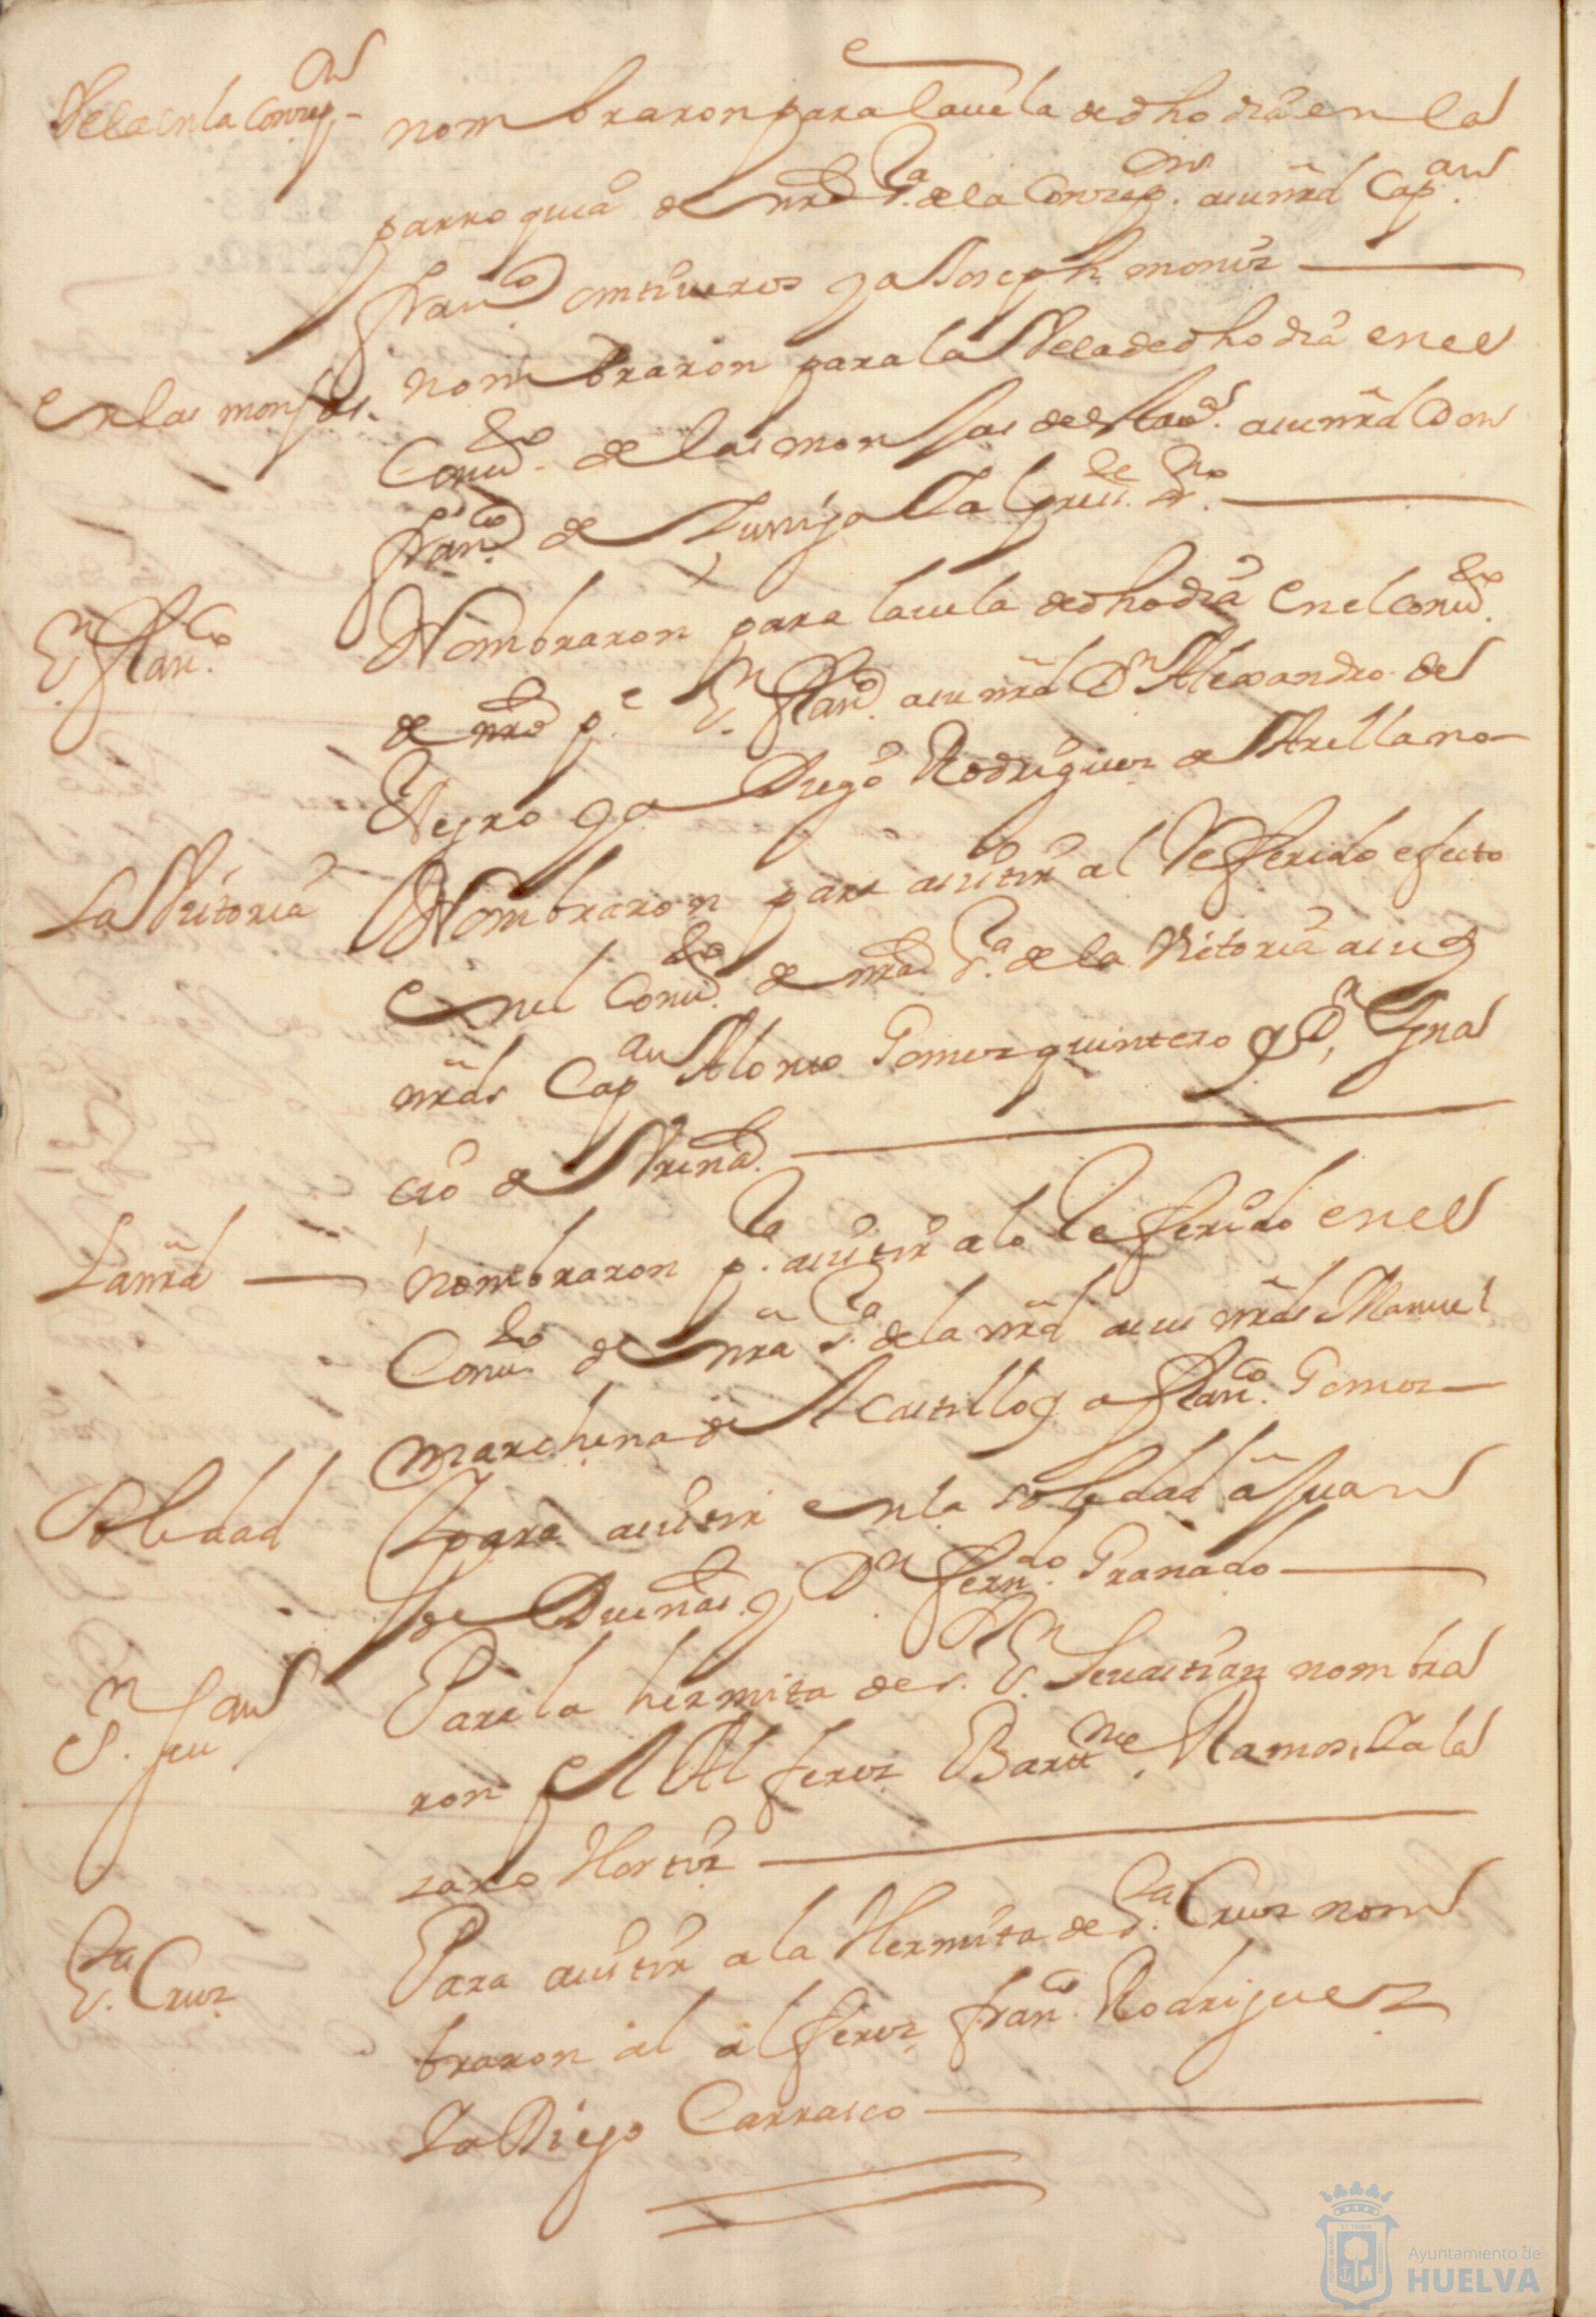 Vela en la Conzepon
nombraron para la uela de dho dia en la
parroquia de nra Sra. de la Conzepon. a sus mrds Capan.
Franco. ontiueros y a Joseph moniz
en las monjas.
nombraron para la Vela de dho dia en el
Conuto. de las monjas a su mrd Don
Franco. de Zuniga Ya
Sn. Franco.
Nombraron para la uela de dho dia en el Conuto.
de nro pe. Sn. Franco. a su mrd Dn Alexandro del
Negro y a Diego Rodriguez de Arellano
La Vitoria
Nombraron para asistir al Refferido efecto
en el Conuto. de nra Sra. de la Vitoria a sus
mrds Capan Alonso Gomez quintero y Dn, Ygna
cio de
La mrd
nombraron pa. asistir a lo Refferido en el
Conuto de nra Sra. de la mrd a sus mrds Manuel
marchena del Castillo y a Franco. Gomez
Soledad
Y para asistir en la soledad a Juan
de Duenas y Dn. Ferndo. Granado
Sn. Seuan
Para la hermita de Sn. Seuastian nombra
ron al Alferez Bartme. Ramos, Ya la
zaro Hortiz
Sta. Cruz
Para asistir a la Hermita de Sta. Cruz nom
braron al alferez, Franco. Rodriguez
Ya Diego Carrasco
Ayuntamiento de
HUELVA